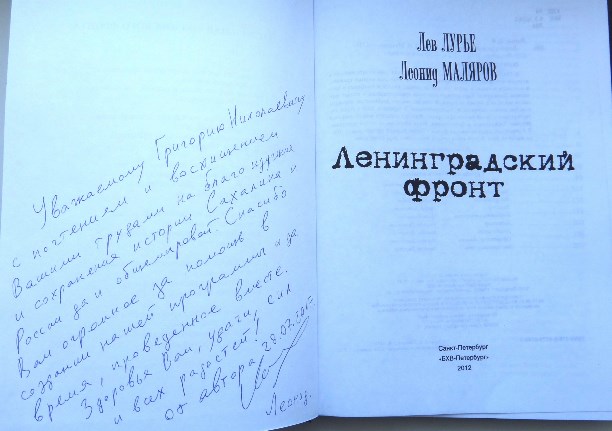 Уважаемому Григорию Николаевичу
с почтением и восхищением
Вашими трудами на благо науки
и сохранения истории Сахалина и
России да и общемировой. Спасибо
Вам огромное за помощь в
создании нашей программы и за
время, проведенное вместе.
Здоровья Вам, удачи, сил
и всех радостей!
от автора
Леонид
Лев ЛУРЬЕ
Леонид МАЛЯРОВ
Ленинградский
фронт
Санкт-Петербург
«БХВ-Петербург»
2012